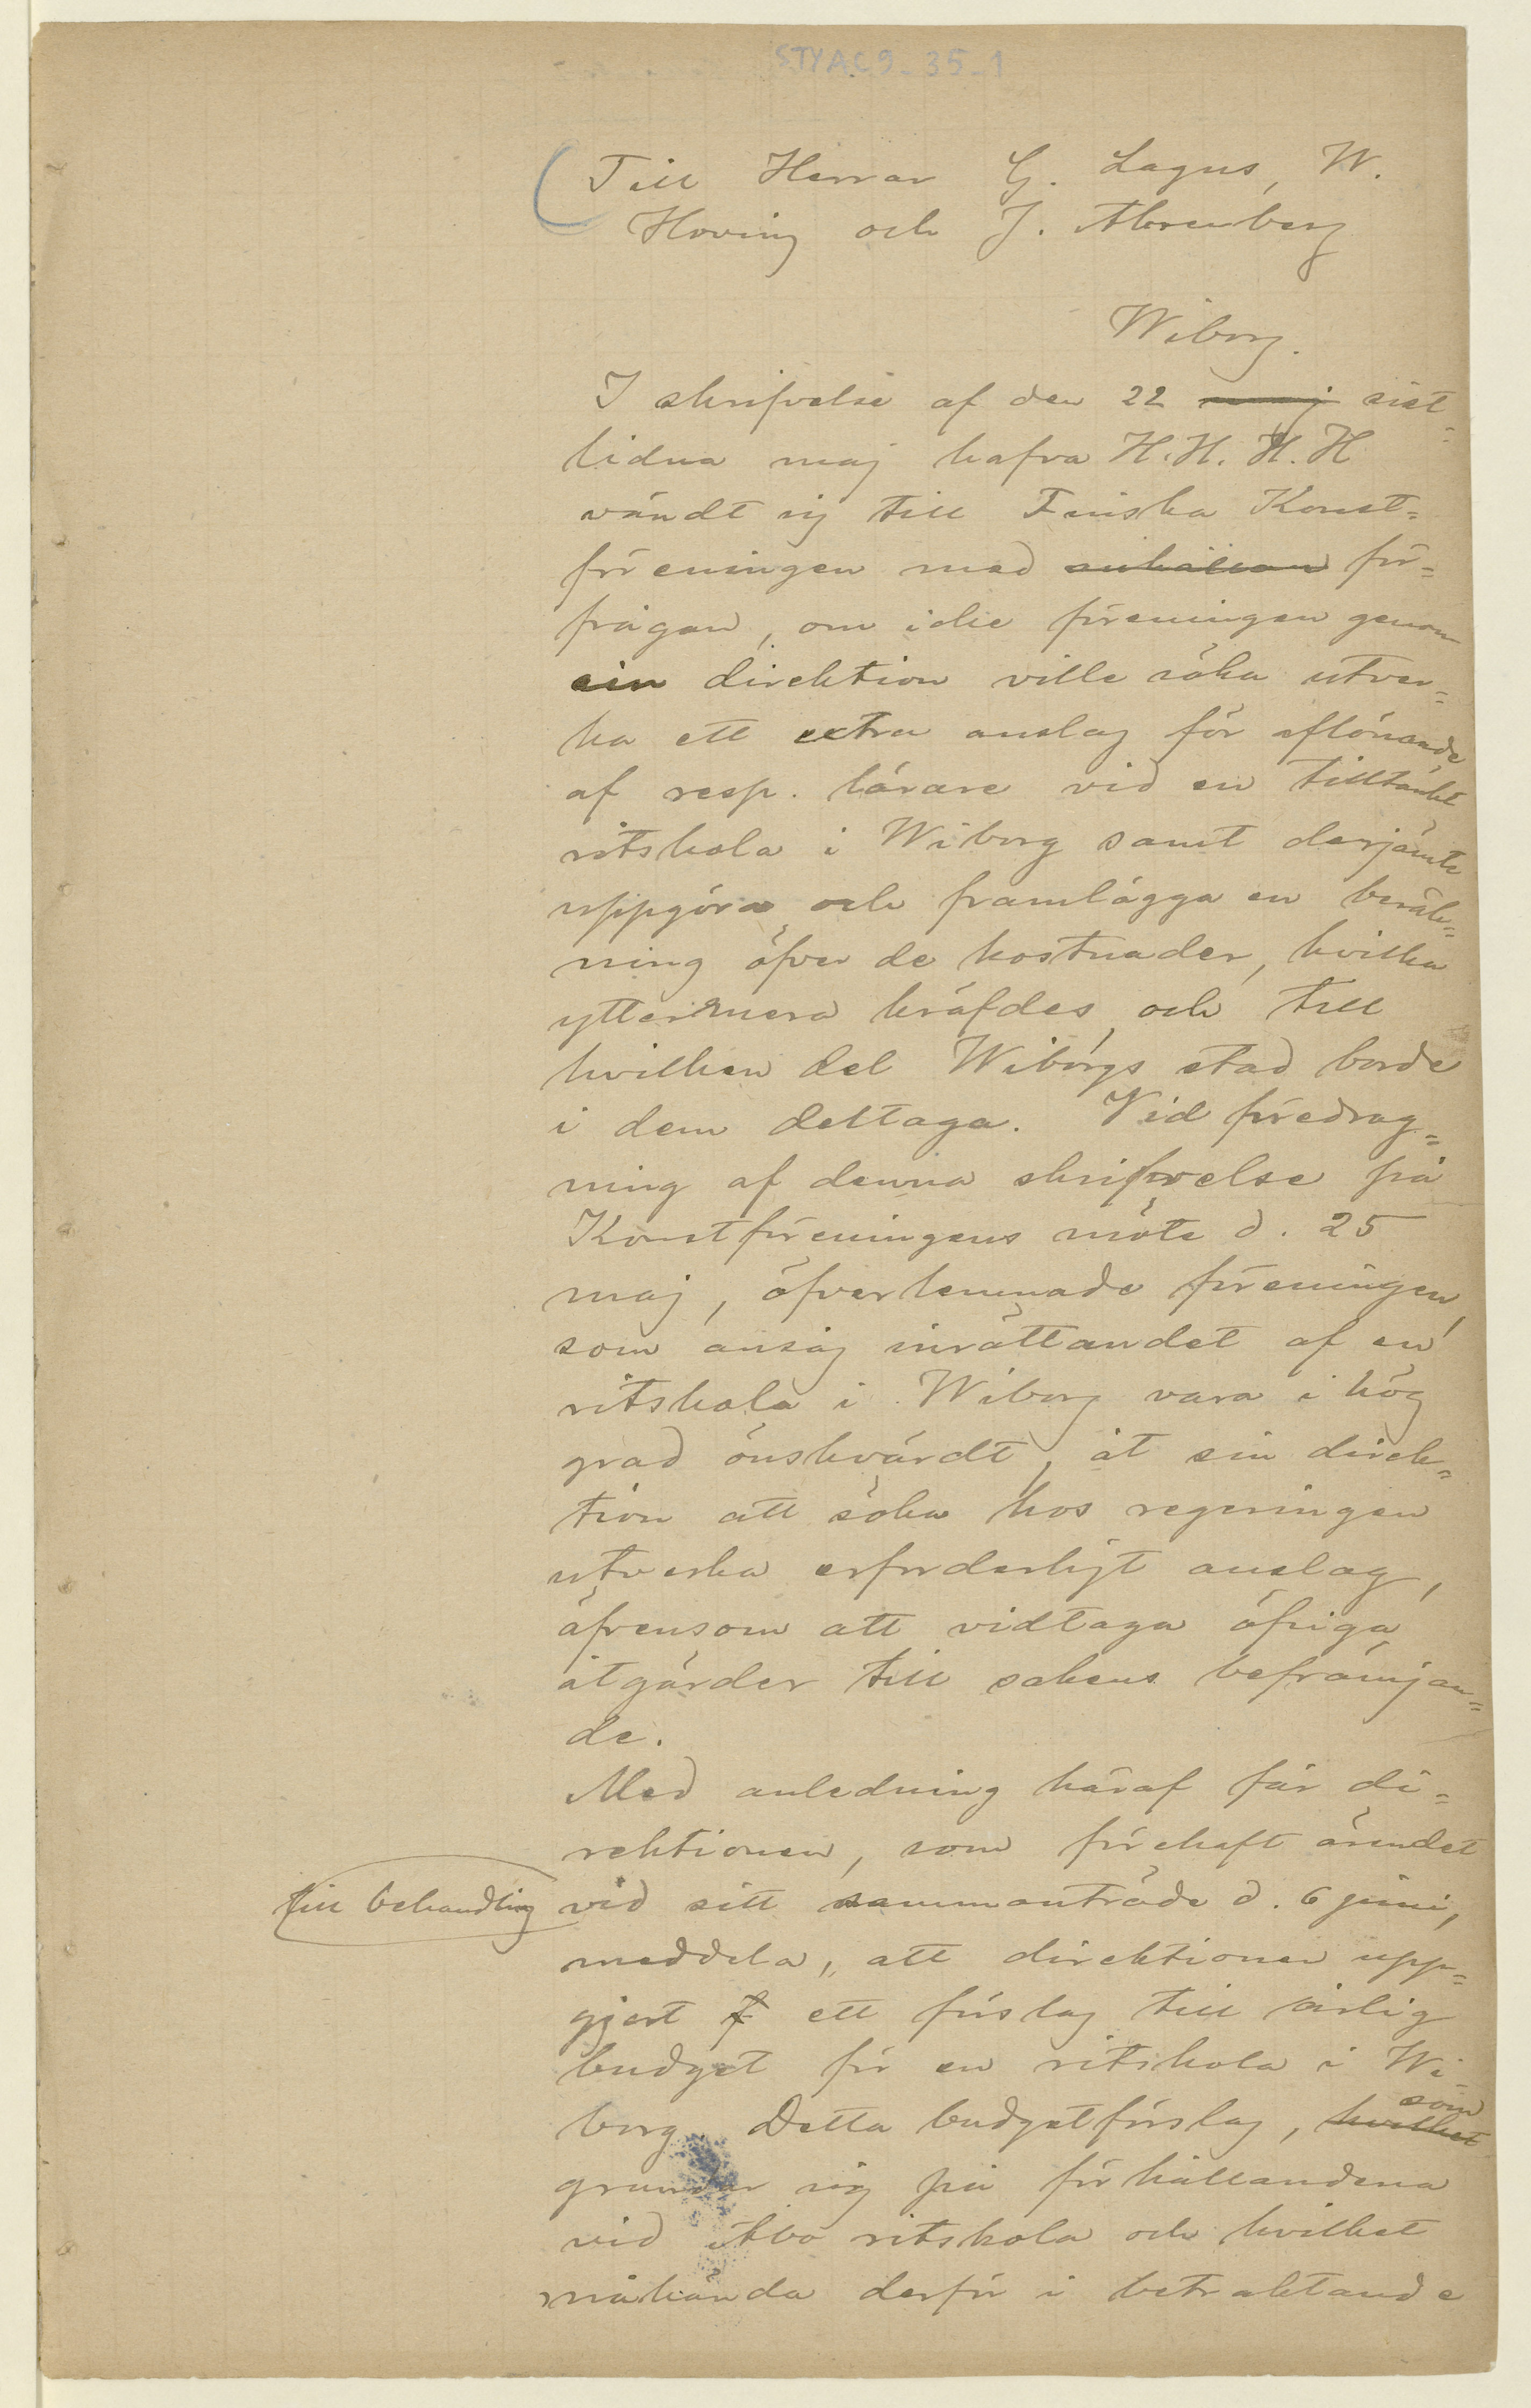 STYAC9-35-1
Till Herrar G. Lagus, W.
Hoving och J. Ahrenberg
Wiborg.
I skrifvelse af den 22 maj sist-
lidna maj hafva H.H. H.H
vändt sig till Finska Konst=
föreningen med anhållan för=
frågan, om icke föreningen genom
sin direktion ville söka utver=
ka ett extra anslag för aflönande
af resp. lärare vid en tilltänkt
ritskola i Wiborg samt derjämte
uppgöra och framlägga en beräk=
ning öfver de kostnader, hvilka
yttermera kräfdes, och till
hvilken del Wiborgs stad borde
i dem deltaga. Vid föredrag=
ning af denna skrifvelse på
Konstföreningens möte d. 25
maj, öfverlemnade föreningen,
som ansåg inrättandet af en
ritskola i Wiborg vara i hög
grad önskvärdt, åt sin direk=
tion att söka hos regeringen
utverka erforderligt anslag,
äfvensom att vidtaga öfriga
åtgärder till sakens befrämjan=
de.
Med anledning häraf får di=
rektionen, som förehaft ärendet
till behandling vid sitt sammanträde d. 6 juni,
meddela, att direktionen upp=
gjort f ett förslag till årlig
budget för en ritskola i Wi-
borg. Detta budgetförslag, hvilket som
grundar sig på förhållandena
vid Åbo ritskola och hvilket
måhända derför i betraktande